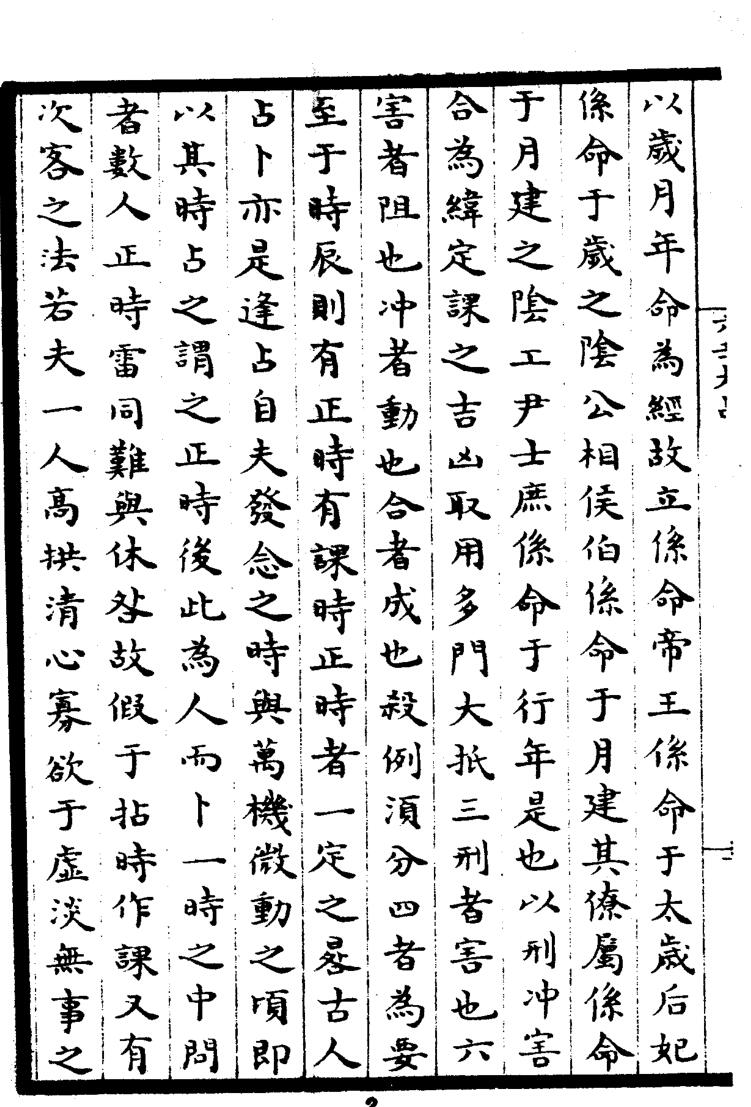 以歲月年命為經故立係命帝王係命于太歲后妃
係命于歲之陰公相侯伯係命于月建其僚屬係命
于月建之陰工尹士庶係命于行年是也以刑冲害
合為緯定課之吉凶取用多門大抵三刑者害也六
害者阻也冲者動也合者成也殺例須分四者為要
至于時辰則有正時有課時正時者一定之晷古人
占卜亦是逢占自夫發念之時與萬機微動之頃即
以其時占之謂之正時後此為人而卜一時之中問
者數人正時雷同難與休咎故假于拈時作課又有
次客之法若夫一人高拱清心寡欲于虛淡無事之